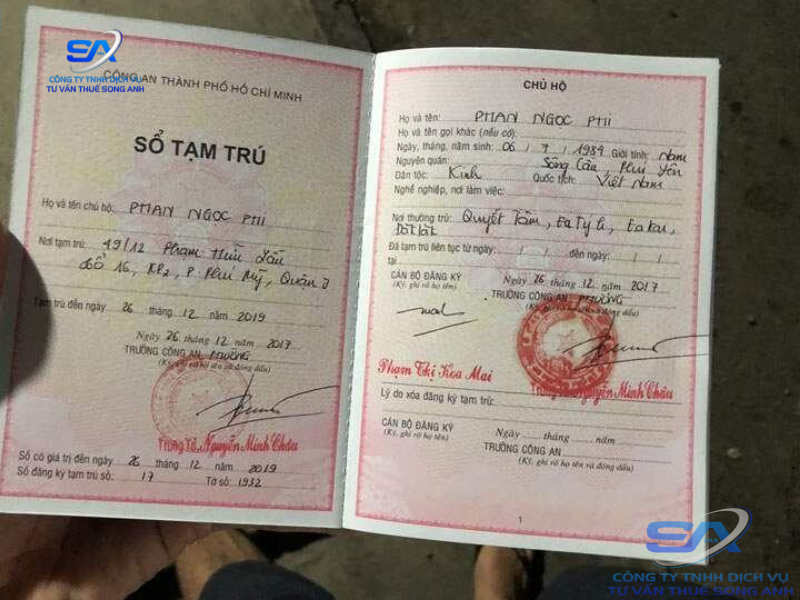 SA
CÔNG TY TNHH DỊCH VỤ
TƯ VẤN THUẾ SONG ANH
CÔNG AN THÀNH PHỐ HỒ CHÍ MINH
SỔ TẠM TRÚ
Họ và tên chủ hộ: PHAN NGỌC PHI
Nơi tạm trú: 49/12 Phạm Hữu Lầu
tổ 16, KP2, P. Phú Mỹ, Quận 7
Tạm trú đến ngày 26 tháng 12 năm 2019
Ngày 26 tháng 12 năm 2017
TRƯỞNG CÔNG AN PHƯỜNG
(Ký, ghi rõ họ tên và đóng dấu)
Trung Tá Nguyễn Minh Châu
Sổ có giá trị đến ngày 26 tháng 12 năm 2019
Số đăng ký tạm trú số: 17 Tờ số: 1932
CHỦ HỘ
Họ và tên: PHAN NGỌC PHI
Họ và tên gọi khác (nếu có):
Ngày, tháng, năm sinh: 06 / 9 / 1984 Giới tính: Nam
Nguyên quán: Sông Cầu, Phú Yên
Dân tộc: Kinh Quốc tịch: Việt Nam
Nghề nghiệp, nơi làm việc:
Nơi thường trú: Quyết Tâm, Ea Tý h, Ea Kar,
Đăk Lăk
Đã tạm trú liên tục từ ngày: / / đến ngày: / /
tại
CÁN BỘ ĐĂNG KÝ
(Ký, ghi rõ họ tên)
Ngày 26 tháng 12 năm 2017
TRƯỞNG CÔNG AN PHƯỜNG
(Ký, ghi rõ họ tên và đóng dấu)
Phạm Thị Hoa Mai
Trung Tá Nguyễn Minh Châu
Lý do xóa đăng ký tạm trú:
CÁN BỘ ĐĂNG KÝ
(Ký, ghi rõ họ tên)
Ngày ..... tháng ..... năm .....
TRƯỞNG CÔNG AN
(Ký, ghi rõ họ tên và đóng dấu)
1
SA
CÔNG TY TNHH DỊCH VỤ
TƯ VẤN THUẾ SONG ANH